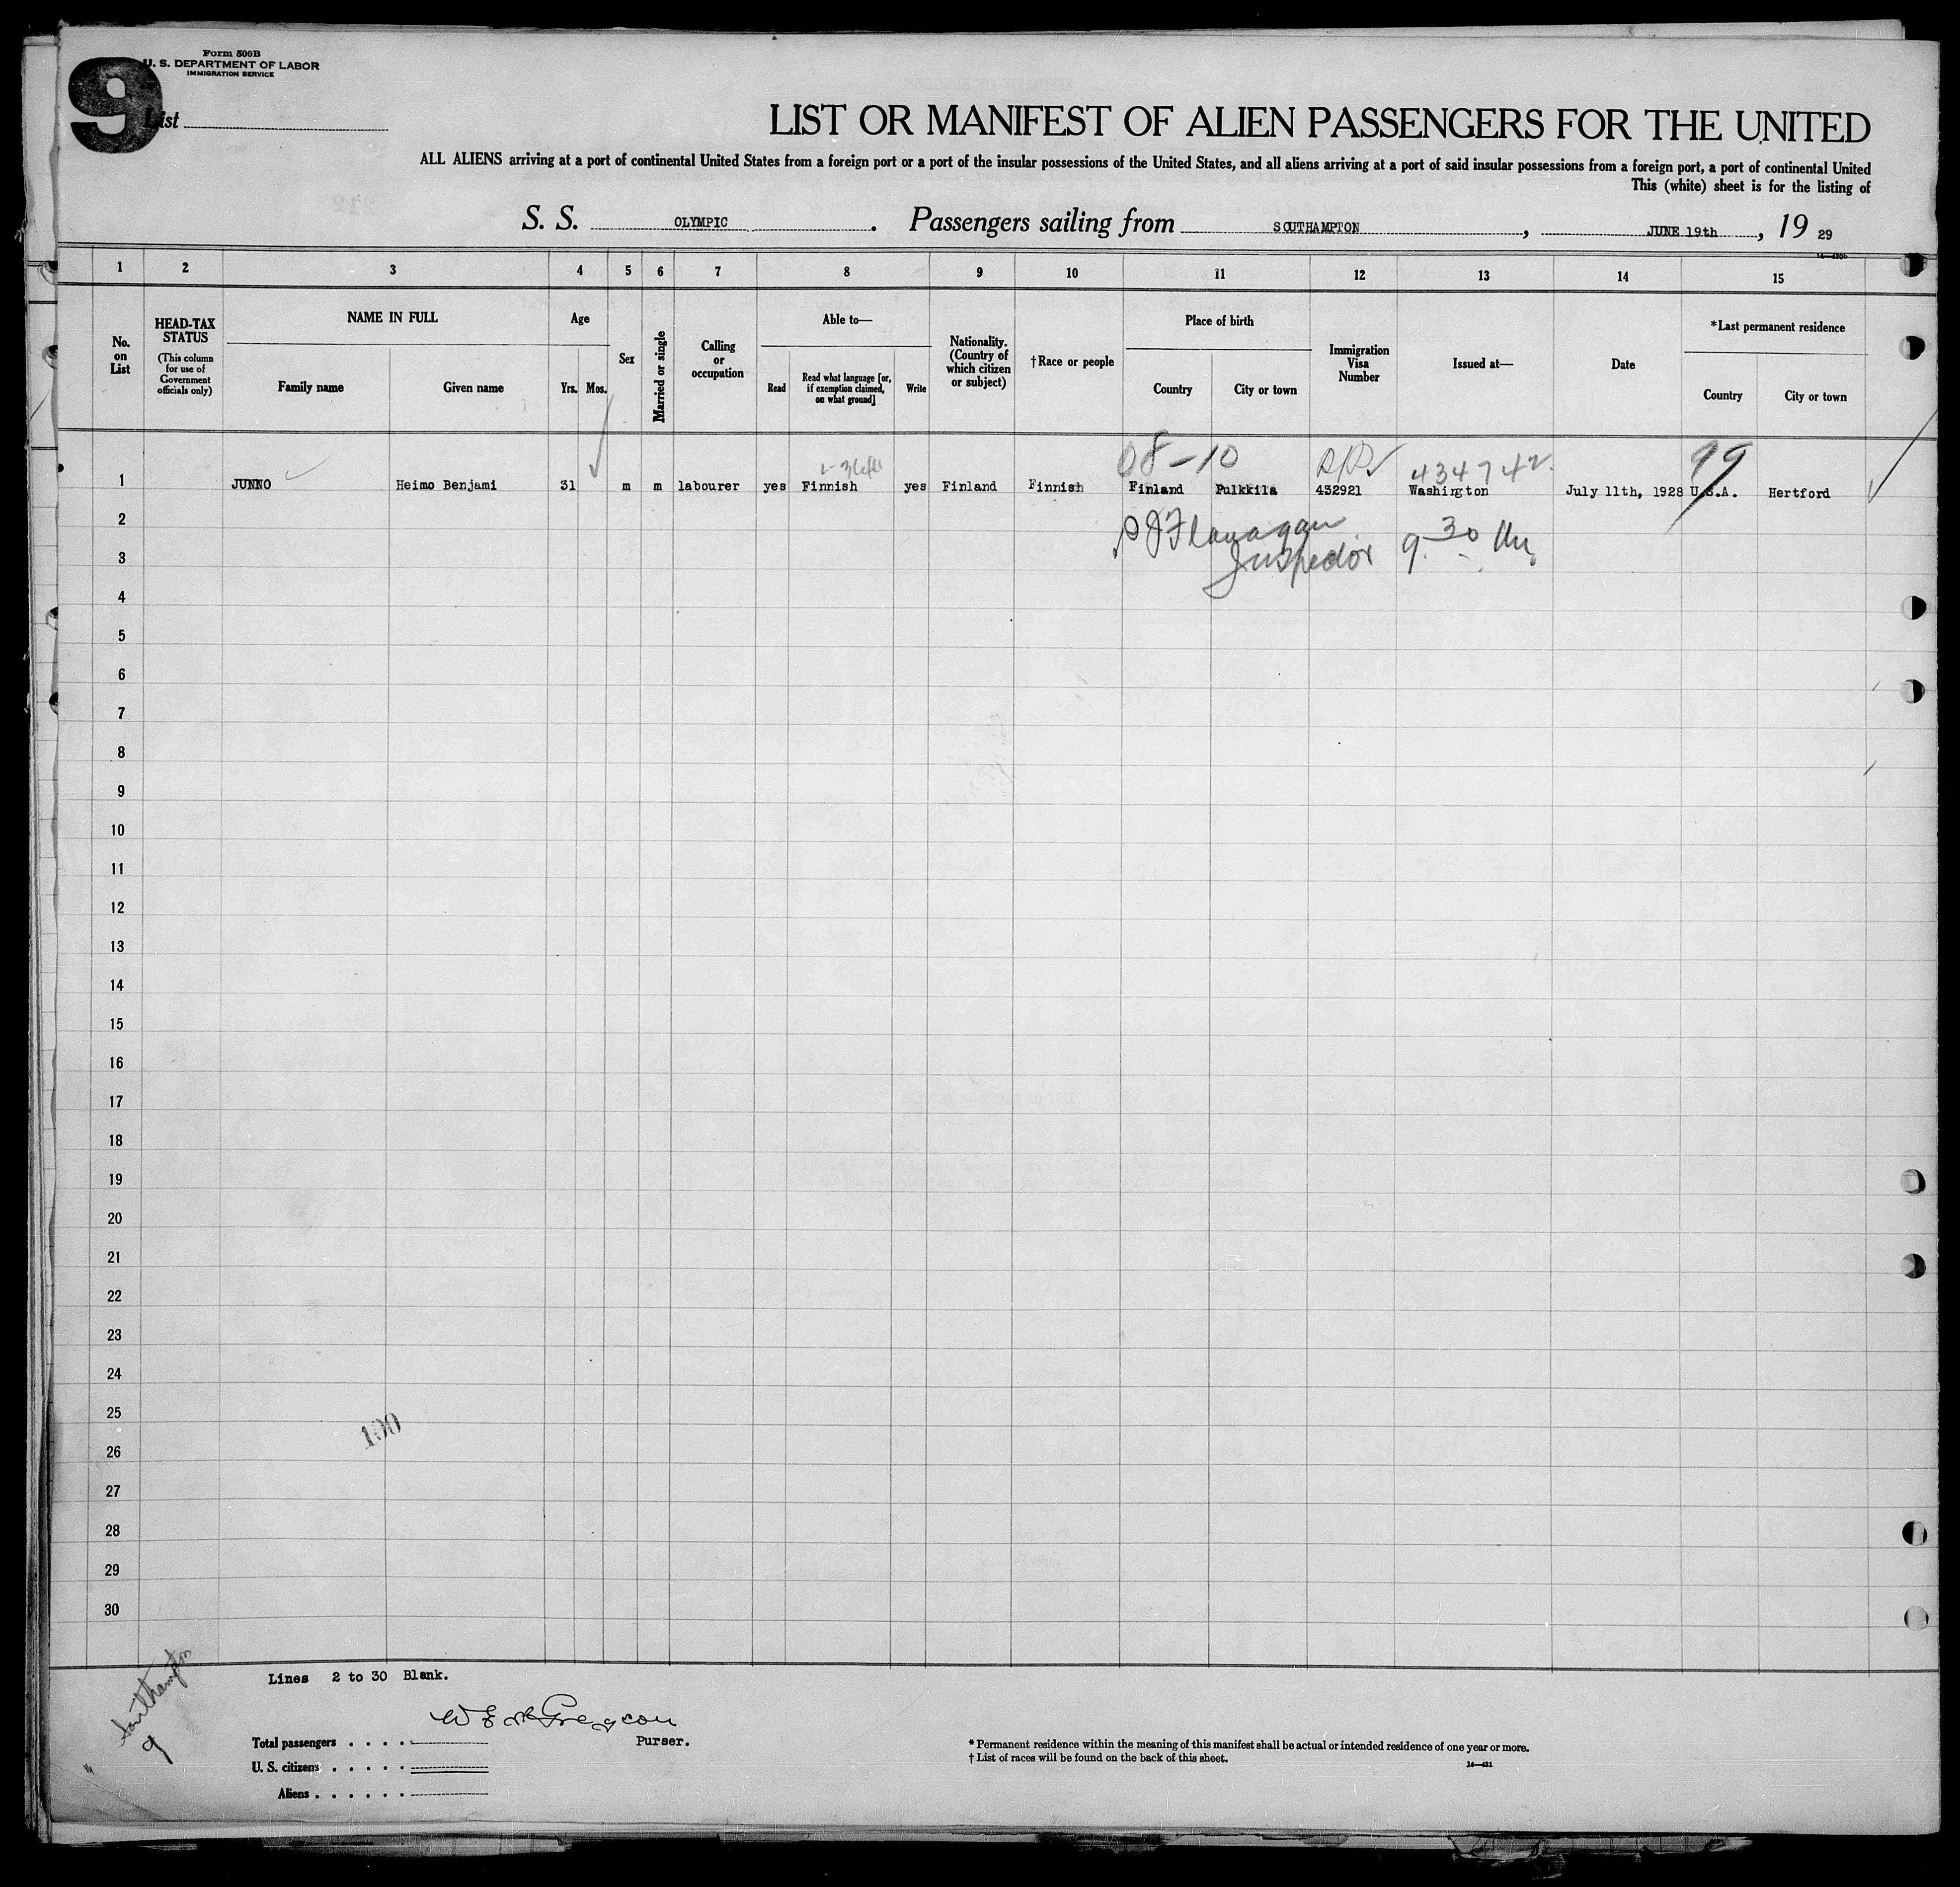 9
Form 500B
U. S. DEPARTMENT OF LABOR
IMMIGRATION SERVICE
List
LIST OR MANIFEST OF ALIEN PASSENGERS FOR THE UNITED
ALL ALIENS arriving at a port of continental United States from a foreign port or a port of the insular possessions of the United States, and all aliens arriving at a port of said insular possessions from a foreign port, a port of continental United
This (white) sheet is for the listing of
S. S. OLYMPIC. Passengers sailing from SOUTHAMPTON, JUNE 19th, 19 29
1 2 3 4 5 6 7 8 9 10 11 12 13 14 15
No. on List
HEAD-TAX STATUS
(This column for use of Government officials only)
NAME IN FULL
Family name
Given name
Age
Yrs. Mos.
Sex
Married or single
Calling or occupation
Able to—
Read
Read what language [or, if exemption claimed, on what ground]
Write
Nationality. (Country of which citizen or subject)
†Race or people
Place of birth
Country
City or town
Immigration Visa Number
Issued at—
Date
*Last permanent residence
Country
City or town
08-10 434742 99
1 JUNNO Heimo Benjami 31 m m labourer yes Finnish yes Finland Finnish Finland Pulkkila 432921 Washington July 11th, 1928 U.S.A. Hertford
2
Flanagan 9.30
3
Inspector
4
5
6
7
8
9
10
11
12
13
14
15
16
17
18
19
20
21
22
23
24
25
100
26
27
28
29
30
Lines 2 to 30 Blank.
Southampton
9
Purser.
Total passengers . . . .
U. S. citizens . . . . .
Aliens . . . . . .
* Permanent residence within the meaning of this manifest shall be actual or intended residence of one year or more.
† List of races will be found on the back of this sheet.
14—431